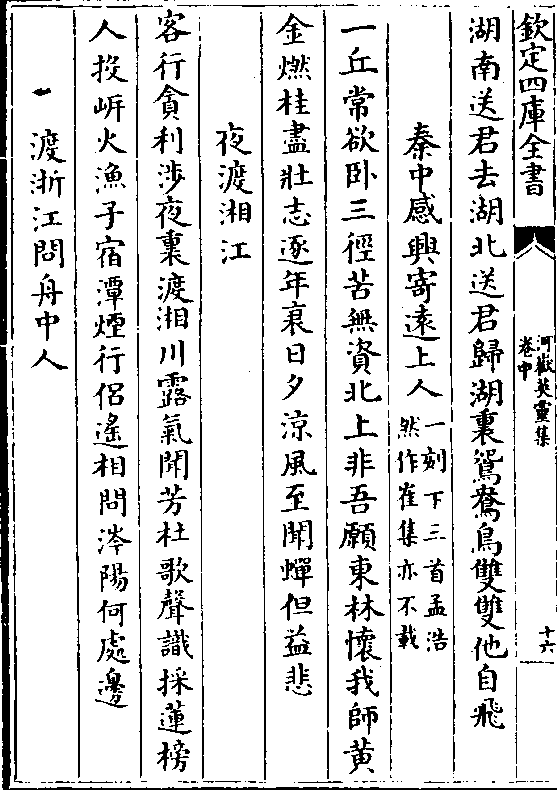 欽定四庫全書
河嶽英靈集
卷中
十六
湖南送君去湖北送君歸湖裏鴛鴦鳥雙雙他自飛
秦中感興寄遠上人
一刻下三首孟浩
然作崔集亦不載
一丘常欲卧三徑苦無資北上非吾願東林懷我師黄
金燃桂盡壯志逐年衰日夕涼風至聞蟬但益悲
夜渡湘江
客行貪利涉夜裏渡湘川露氣聞芳杜歌聲識採蓮榜
人投岍火漁子宿潭煙行侣遙相問涔陽何處邊
渡浙江問舟中人